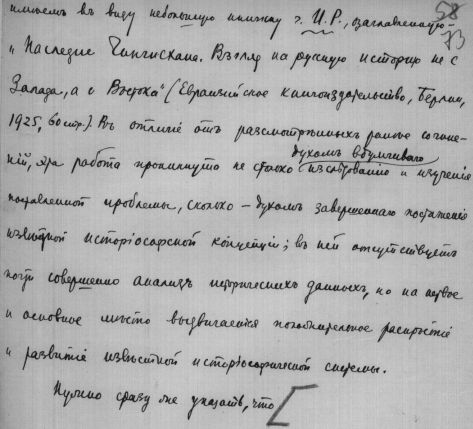 58
73
имѣемъ въ виду небольшую книжку г. И.Р., озаглавленную —
„Наслѣдіе Чингисхана. Взглядъ на русскую исторію не с
Запада, а с Востока" (Евразійское книгоиздательство, Берлин,
1925, 60 стр.). Въ отличіе отъ разсмотрѣнныхъ раньше сочине-
духомъ вдумчиваго
ній, эта работа проникнута не столько изслѣдованія и изученія
поставленной проблемы, сколько — духомъ завершеннаго постиженія
извѣстной исторіософской концепціи; въ ней отсутствуетъ
почти совершенно анализъ историческихъ данныхъ, но на первое
и основное мѣсто выдвигается
и развитіе извѣстной исторіософической системы.
Нужно сразу же указать, что [